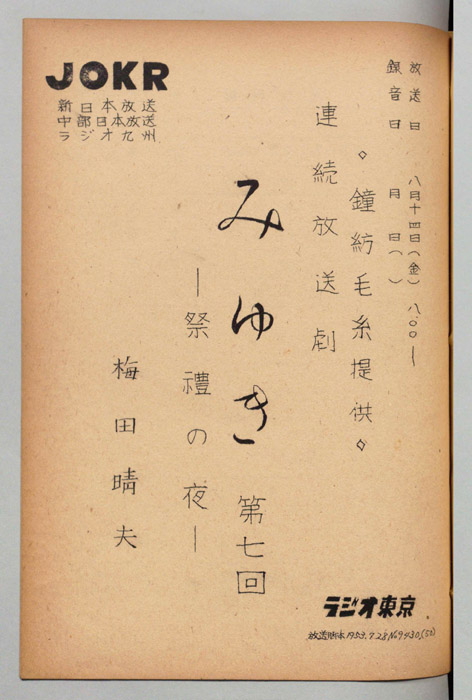 放送日 八月十四日(金) 八.〇〇—
録音日 月 日( )
◇鐘紡毛糸提供◇
連続放送劇
みゆき 第七回
—祭禮の夜—
梅田晴夫
JOKR
新日本放送
中部日本放送
ラジオ九州
ラジオ東京
放送脚本1953.7.28.No9430.(50)